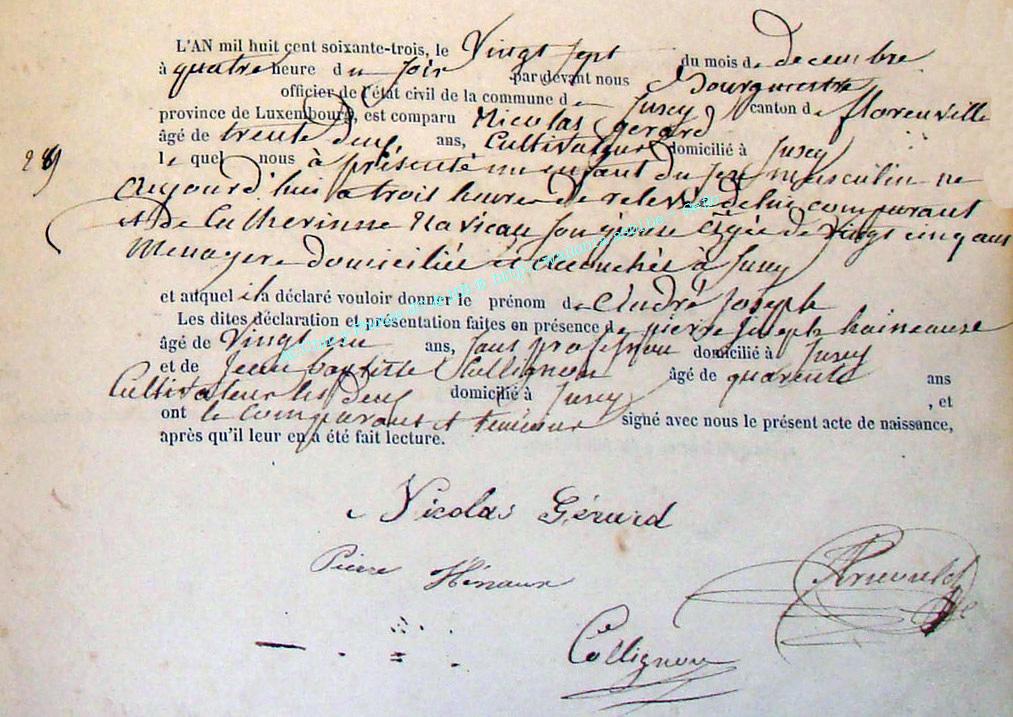 L'AN mil huit cent soixante-trois, le Vingt sept du mois de decembre
à quatre heure du soir par devant nous Bourgmestre
officier de l'état civil de la commune de Jusey canton de florenville
province de Luxembourg, est comparu Nicolas Gerard
âgé de trente deux ans, Cultivateur domicilié à Jusey
28
le quel nous à présenté un enfant du sexe masculin né
aujourd'hui a trois heure de relevée de lui comparant
et De Catherinne Naviaux son épouse agée de vingt cinq ans
menagere domiciliée et accouchée à Jusey
et auquel il a déclaré vouloir donner le prénom de André Joseph
Les dites déclaration et présentation faites en présence de pierre Joseph haineause
âgé de Vingt un ans, sans profession domicilié à Jusey
et de Jean baptiste Collignon âgé de quarente ans
Cultivateur les deux domicilié à Jusey , et
ont le comparant et temoins signé avec nous le présent acte de naissance,
après qu'il leur en a été fait lecture.
Nicolas Gérard
Pierre Hénaux
Collignon